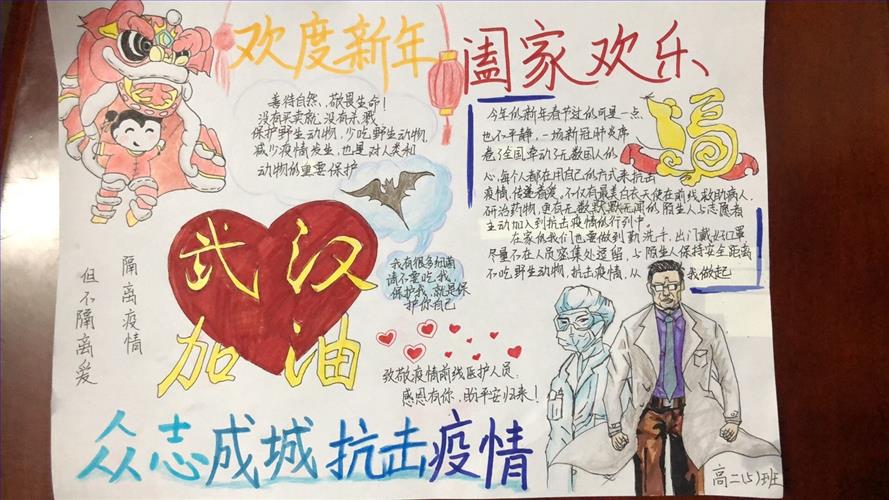 欢度新年
阖家欢乐
善待自然、敬畏生命!
没有买卖就没有杀戮
保护野生动物,少吃野生动物
减少疫情发生,也是对人类和
动物的重要保护
今年的新年春节过的可是一点
也不平静,一场新冠肺炎席
卷了全国牵动了无数国人的
心,每个人都在用自己的方式来抗击
疫情,传递着爱。不仅有最美白衣天使在前线救助病人,
研治药物,更有无数默默无闻的陌生人与志愿者
主动加入到抗击疫情的行列中。
在家的我们也要做到勤洗手,出门戴好口罩
尽量不在人员密集处逗留,与陌生人保持安全距离
不吃野生动物,抗击疫情,从我做起
福
武汉
加油
隔离疫情
但不隔离爱
我有很多细菌
请不要吃我
保护我,就是保
护你自己
致敬疫情前线医护人员
感恩有你,盼平安归来!
众志成城抗击疫情
高二(5)班